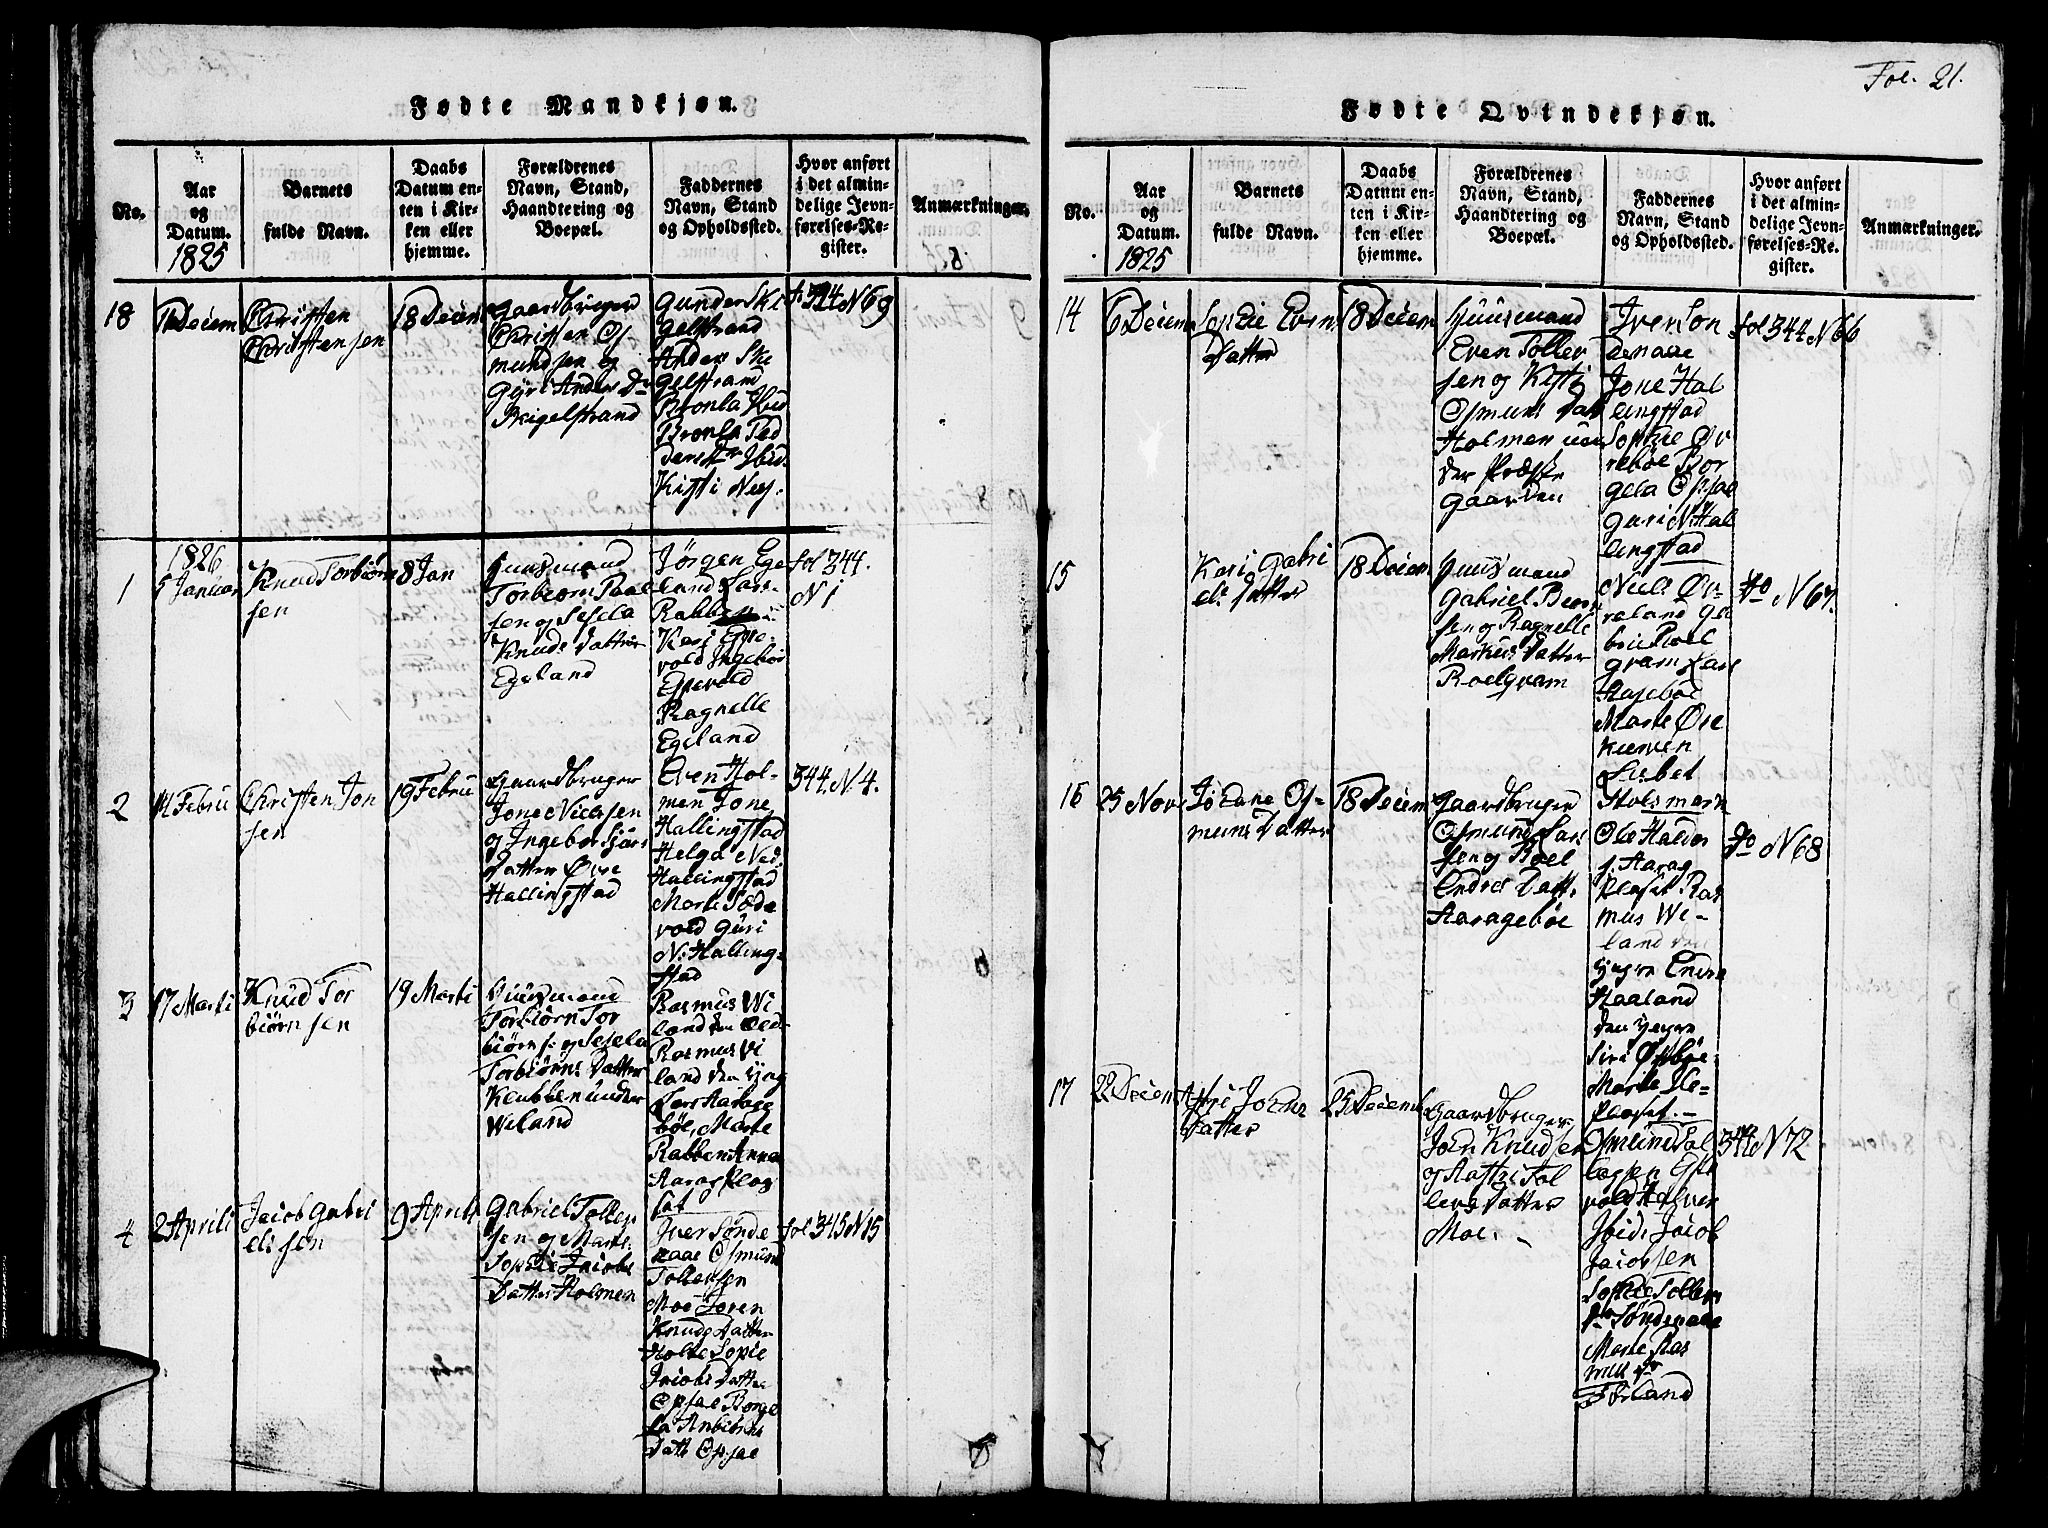 Fødte Mandkjøn.
No.
Aar
og
Datum.
1825
Barnets
fulde Navn.
Daabs
Datum en-
ten i Kir-
ken eller
hjemme.
Forældrenes
Navn, Stand,
Haandtering og
Boepæl.
Faddernes
Navn, Stand
og Opholdssted.
Hvor anført
i det almin-
delige Jevn-
førelses-Re-
gister.
Anmærkninger.
18
Deiem
Christen
Christensen
18 Deiem
Gaardbruger
Christen Os
mundsen og
Gyri Anders Dr
Skigelstrand
Gunder Ske
gelstrand
Anders Ske
gelstrand
Kisti Nes.
N 69
1
1826
5 Januar
Knud Torbiørn
sen
8 Jan
Huusmand
Torbiørn Paal
sen og Sesela
Knuds Datter
Egeland
Jørgen Ege
land Lars
Rabben
Kari Espe
vold Ingebor
Espevold
Ragnelle
Egeland
fol 344.
N 1
2
14 Febru
Christen Jon
sen
19 Febru
Gaardbruger
Jone Nielsen
og Ingebor Sjurs
Datter Øvre
Hallingstad
Even Hol-
men Jone
Hallingstad
Helga Ned.
Hallingstad
Marte Sæde
vold Guri
N. Halling-
stad
344. N. 4.
3
17 Marti
Knud Tor
biørnsen
19 Marti
Huusmand
Torbiørn Tor
biørns: og Sesela
Torbiørns Datter
Klubben under
Weland
Rasmus Wi
land den eld-
Rasmus Vi
land den yng
Lars Aarage
bøe, Marte
Rabben Anna
Aaras Plag
sat
4
2 Aprili
Jacob Gabri
elsen
9 Aprili
Gabriel Tollef
sen og Marte
Sophie Jacobs
Datter Holmen
Iver Sønde
naae Osmund
Tollevsen
Moe Joren
Knuds Datter
Holte Sopie
Jacobs Datter
Opsae Borge
la Anbiørns
Datt Opsae
fol 345 N 15
Fol. 21.
Fødte Qvindekjøn.
No.
Aar
og
Datum.
1825
Barnets
fulde Navn.
Daabs
Datum en-
ten i Kir-
ken eller
hjemme.
Forældrenes
Navn, Stand,
Haandtering og
Boepæl.
Faddernes
Navn, Stand
og Opholdssted.
Hvor anført
i det almin-
delige Jevn-
førelses-Re-
gister.
Anmærkninger.
14
6 Deiem
Sophie Evens
Datter
18 Deiem
Huusmand
Even Tollef
sen og Kisti
Osmuns Datt
Holmen un
der Præste
gaarden
Iver Søn
denaae
Jone Hal
lingstad
Sophie Ør
rebøe Bor
gela Opsal
Guri N. Hal
lingstad
fol 344 N 66
15
Kari Gabri
els Datter
18 Deiem
Huusmand
Gabriel Been
sen og Ragnelle
Markus Datter
Roelgvam
Niels Øv-
reland Ga
briel Roel
gvam Lars
Aasebøe
Marte Øre
kurven
Lisbet
Holsmark
do N 67.
16
25 Nov
Johane Os-
muns Datter
18 Deiem
Gaardbruger
Osmund Lars
sen og Boel
Endres Datt.
Aaragebøe
Ole Halvor
s. Aarag
Plaset Ras
mus We-
land den
yngre Endre
Haaland
den yngre
Siri Ørebøe.
Marte He-
plaset.
do N 68
17
22 Deiem
Joens
Datter
25 Deiem
Gaardbruger
Joen Knudsen
og Aastri Tol
levs Datter
Moe.
Osmund Tol
lefsen
vold Halvor
Ibid. Jacob
Jacobsen
Sophie Tollevs
Dr Søndenaae
Marte Ras
mus Dr
Førland
344 N 72